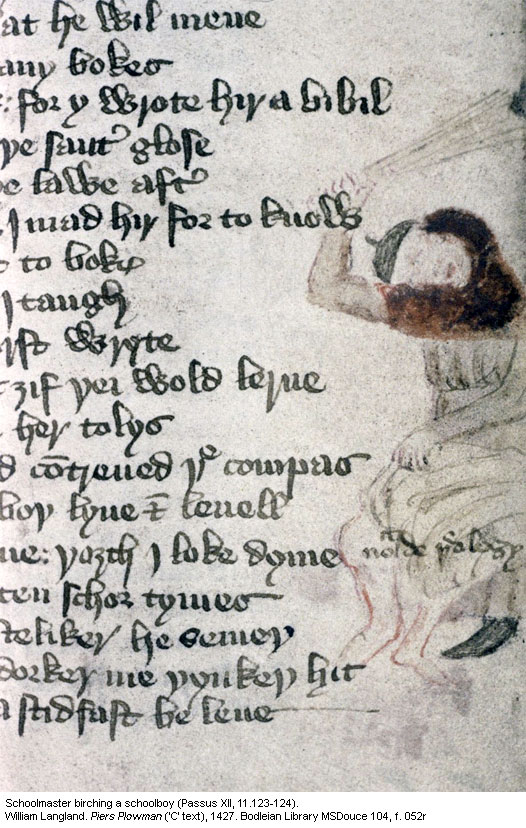 at he wil mene
any bokes
: for y wrote hir a bibil
ye saut' glose
lawe aft'
I mad hir for to know
to boke
I taugh
wryte
zif yei wold lerne
her tolys
cōtreued yᵉ compas
boy lyne & leuell
yozth I loke dyme
ten schor tymes
he semey
dorker me yynkey hit
a stidfast be leue
Schoolmaster birching a schoolboy (Passus XII, 11.123-124).
William Langland. Piers Plowman ('C' text), 1427. Bodleian Library MSDouce 104, f. 052r